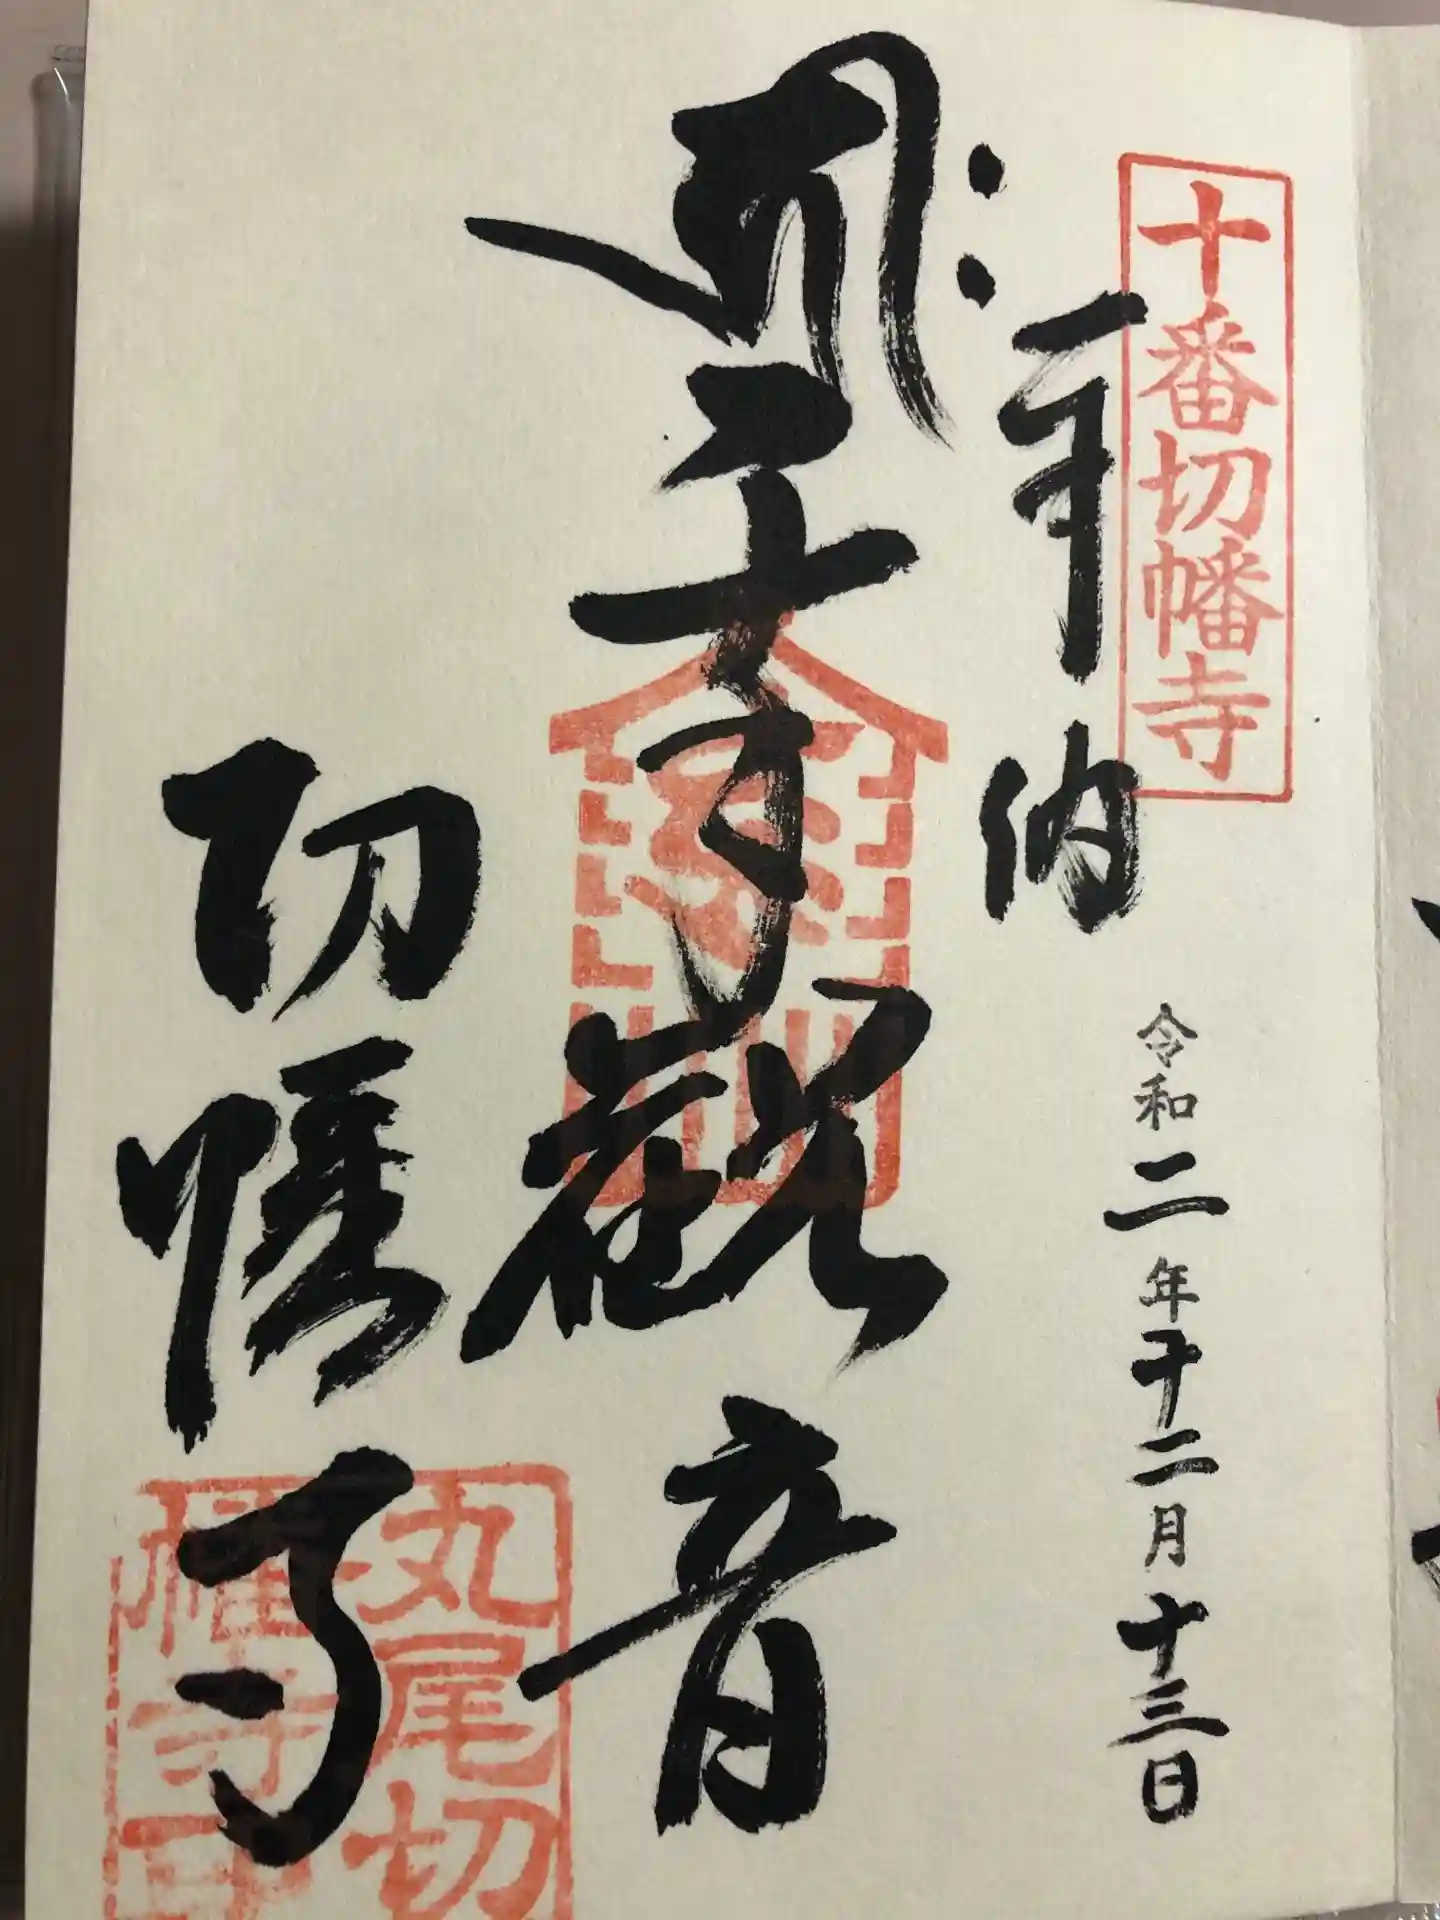 十番切幡寺
奉納
令和二年十二月十三日
千手観音
切幡寺
丸尾切
幡寺印